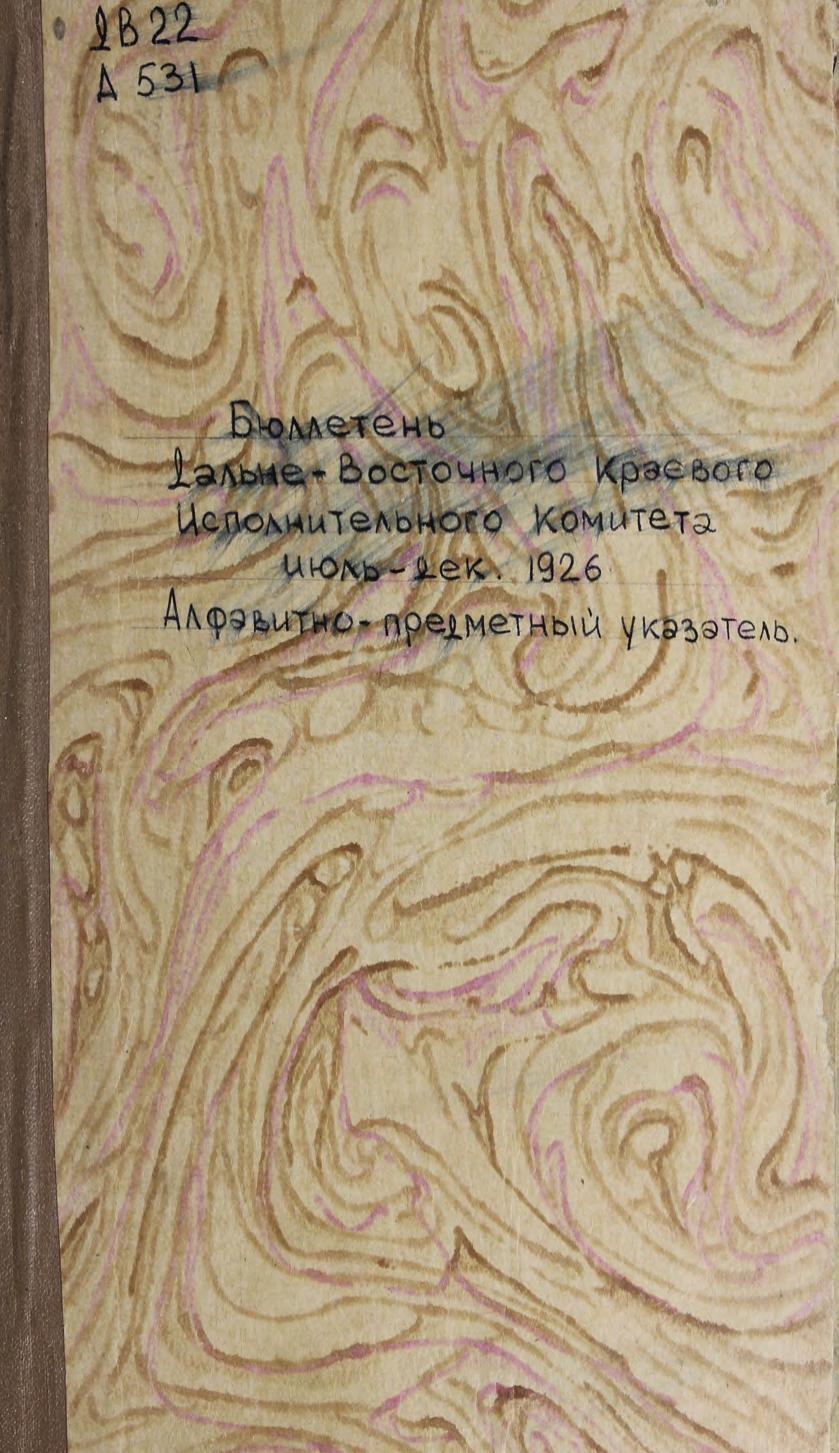 ДВ 22
Д 531
Бюллетень
Дальне-Восточного Краевого
Исполнительного Комитета
июль-дек. 1926
Алфавитно-предметный указатель.